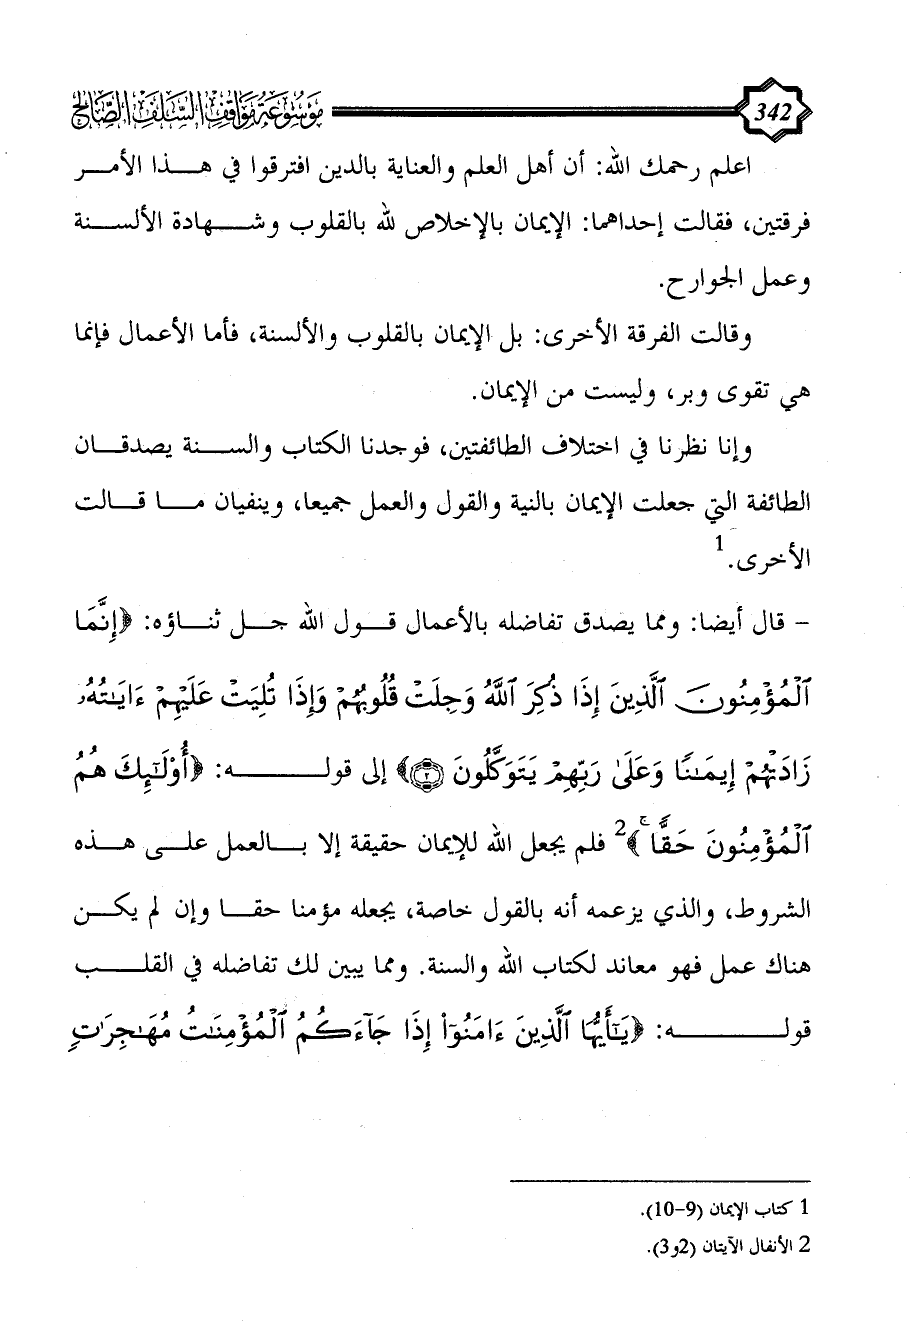 342
موسوعة مواقف السلف الصالح
اعلم رحمك الله: أن أهل العلم والعناية بالدين افترقوا في هذا الأمر
فرقتين، فقالت إحداهما: الإيمان بالإخلاص لله بالقلوب وشهادة الألسنة
وعمل الجوارح.
وقالت الفرقة الأخرى: بل الإيمان بالقلوب والألسنة، فأما الأعمال فإنما
هي تقوى وبر، وليست من الإيمان.
وإنا نظرنا في اختلاف الطائفتين، فوجدنا الكتاب والسنة يصدقان
الطائفة التي جعلت الإيمان بالنية والقول والعمل جميعا، وينفيان ما قالت
الأخرى.1
- قال أيضا: ومما يصدق تفاضله بالأعمال قول الله جل ثناؤه: ﴿إِنَّمَا
ٱلْمُؤْمِنُونَ ٱلَّذِينَ إِذَا ذُكِرَ ٱللَّهُ وَجِلَتْ قُلُوبُهُمْ وَإِذَا تُلِيَتْ عَلَيْهِمْ ءَايَـٰتُهُۥ
زَادَتْهُمْ إِيمَـٰنًا وَعَلَىٰ رَبِّهِمْ يَتَوَكَّلُونَ ٢﴾ إلى قوله: ﴿أُوْلَـٰٓئِكَ هُمُ
ٱلْمُؤْمِنُونَ حَقًّا ۚ﴾2 فلم يجعل الله للإيمان حقيقة إلا بالعمل على هذه
الشروط، والذي يزعمه أنه بالقول خاصة، يجعله مؤمنا حقا وإن لم يكن
هناك عمل فهو معاند لكتاب الله والسنة. ومما يبين لك تفاضله في القلب
قوله: ﴿يَـٰٓأَيُّهَا ٱلَّذِينَ ءَامَنُوٓا۟ إِذَا جَآءَكُمُ ٱلْمُؤْمِنَـٰتُ مُهَـٰجِرَٰتٍ
1 كتاب الإيمان (9-10).
2 الأنفال الآيتان (2و3).